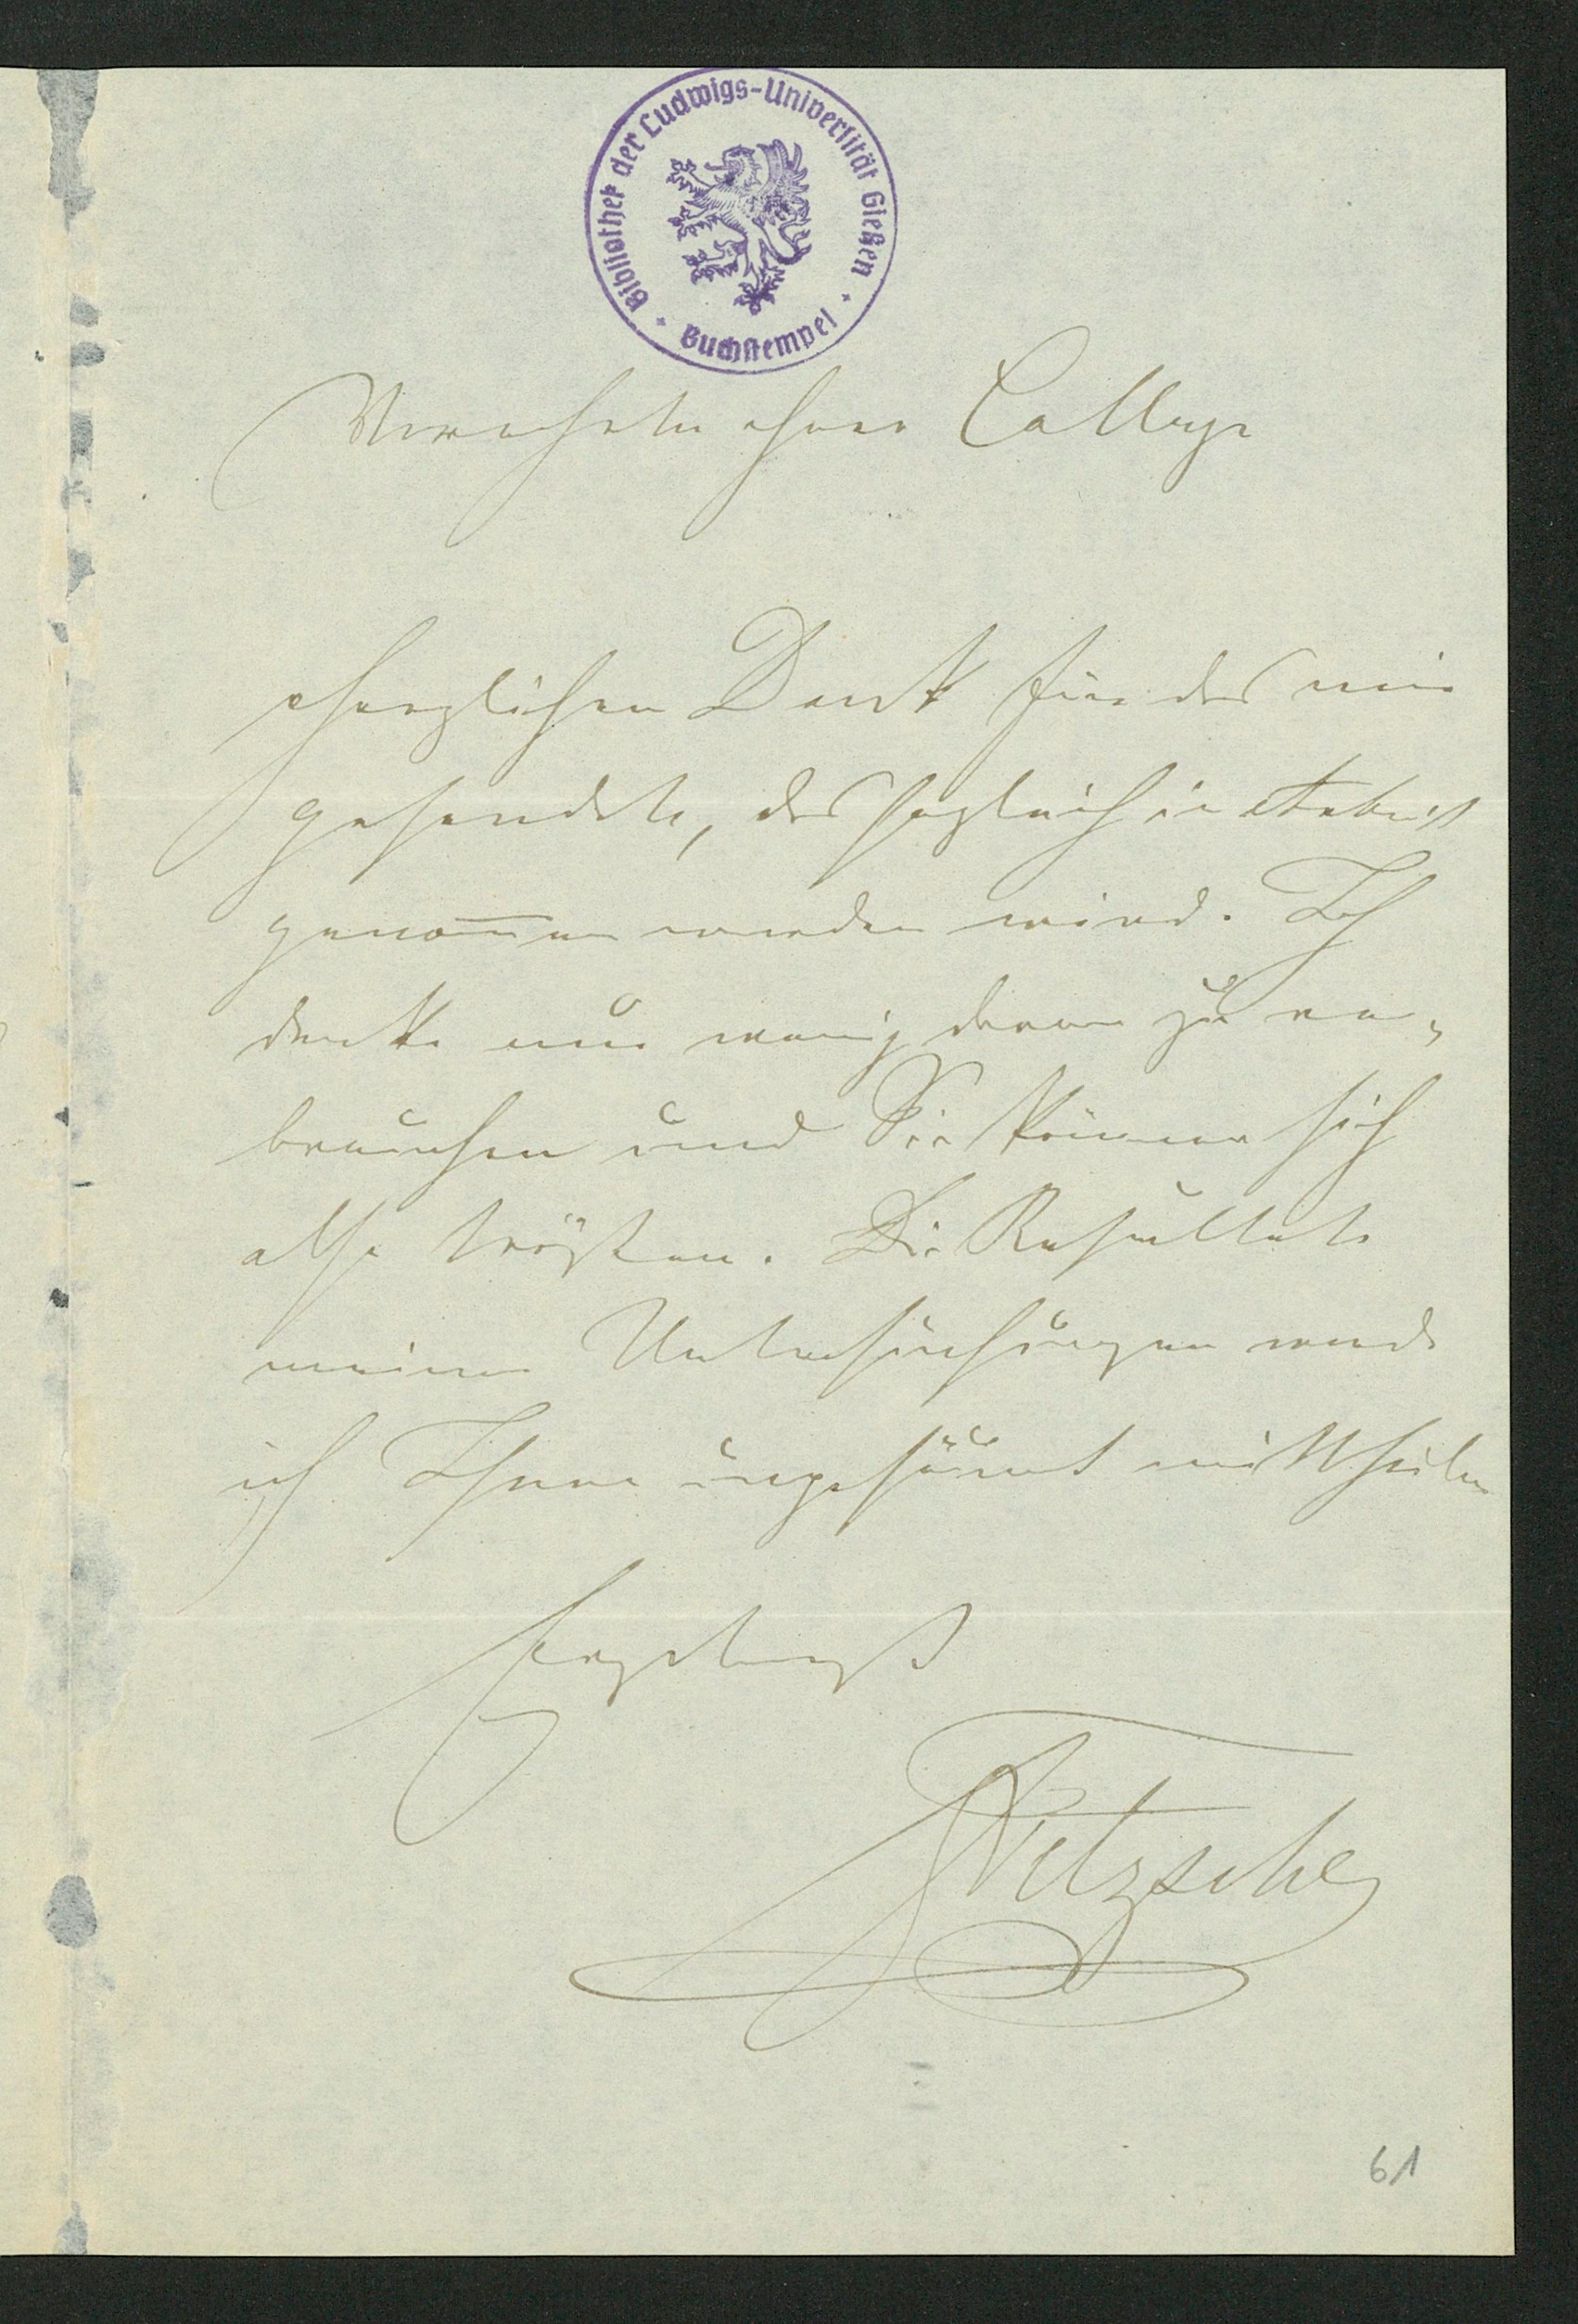 Bibliothek der Ludwigs-Universität Gießen
Buchstempel
Verehrter Herr College
herzlichen Dank für das mir
gesendete, das sogleich in Arbeit
genommen werden wird. Ich
denke nur wenig davon zu ver-
brauchen und Sie können sich
also trösten. Die Resultate
meiner Untersuchungen werde
ich Ihnen ungesäumt mittheilen
Ergebenst
Nitzsche
61